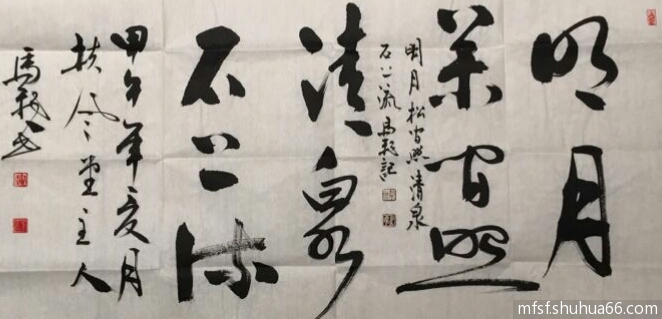 明月
松間照
明月松間照清泉
石上流馬記
清泉
石上流
甲午年夏月
扶风堂主人
馬書
mfsf.shuhua66.com